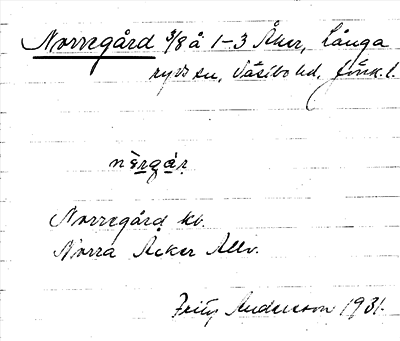 Norregård 3/8 å 1-3 Åker, Långa
ryds sn, Västbo hd, Jönk. l.
Norregård kb.
Norra Åcker Allv.
Fritz Andersson 1931.